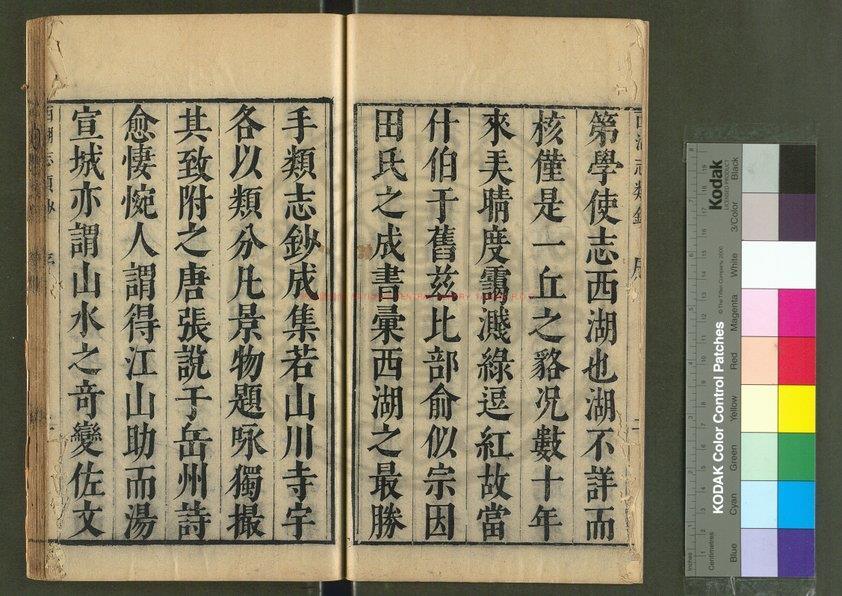 第學使志西湖也湖不詳而
核僅是一丘之貉况數十年
來天晴度靄濺綠逗紅故當
什伯于舊茲比部俞似宗因
田氏之成書彙西湖之最勝
手類志鈔成集若山川寺宇
各以類分凡景物題咏獨撮
其致附之唐張說于岳州詩
愈悽惋人謂得江山助而湯
宣城亦謂山水之奇變佐文
Kodak
KODAK Color Control Patches
© The Tiffen Company, 2000
Blue
Cyan
Green
Yellow
Red
Magenta
White
3/Color
Black
Inches
Centimetres